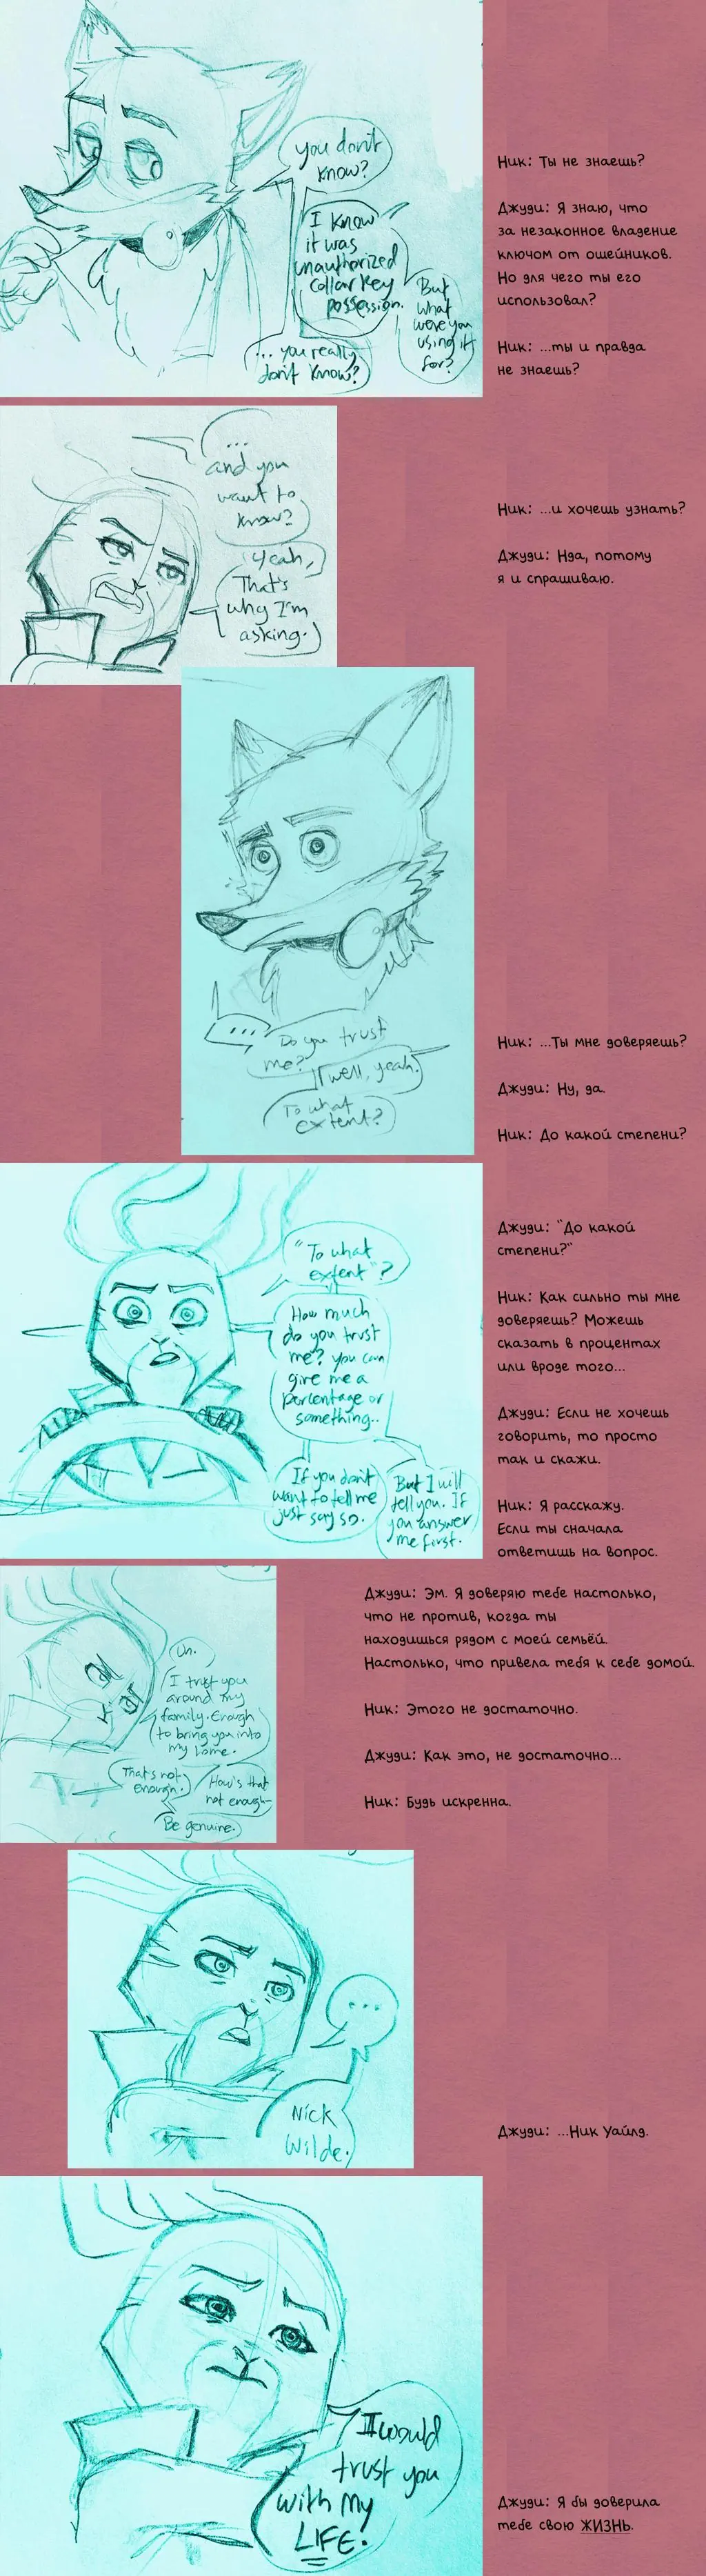 you don't
know?
I know
it was
unauthorized
collar key
possession.
But
what
were you
using it
for?
... you really
don't know?
Ник: Ты не знаешь?
Джуди: Я знаю, что
за незаконное владение
ключом от ошейников.
Но для чего ты его
использовал?
Ник: ...ты и правда
не знаешь?
...
and you
want to
know?
Yeah,
That's
why I'm
asking.
Ник: ...и хочешь узнать?
Джуди: Нда, потому
я и спрашиваю.
...
Do you trust
me?
well, yeah.
To what
extent?
Ник: ...Ты мне доверяешь?
Джуди: Ну, да.
Ник: До какой степени?
"To what
extent"?
How much
do you trust
me? you can
give me a
percentage or
something..
If you don't
want to tell me
just say so.
But I will
tell you. If
you answer
me first.
Джуди: "До какой
степени?"
Ник: Как сильно ты мне
доверяешь? Можешь
сказать в процентах
или вроде того...
Джуди: Если не хочешь
говорить, то просто
так и скажи.
Ник: Я расскажу.
Если ты сначала
ответишь на вопрос.
Uh.
I trust you
around my
family. Enough
to bring you into
my home.
That's not
enough.
How's that
not enough-
Be genuine.
Джуди: Эм. Я доверяю тебе настолько,
что не против, когда ты
находишься рядом с моей семьёй.
Настолько, что привела тебя к себе домой.
Ник: Этого не достаточно.
Джуди: Как это, не достаточно...
Ник: Будь искренна.
...
Nick
Wilde.
Джуди: ...Ник Уайлд.
I would
trust you
with my
LIFE.
Джуди: Я бы доверила
тебе свою ЖИЗНЬ.